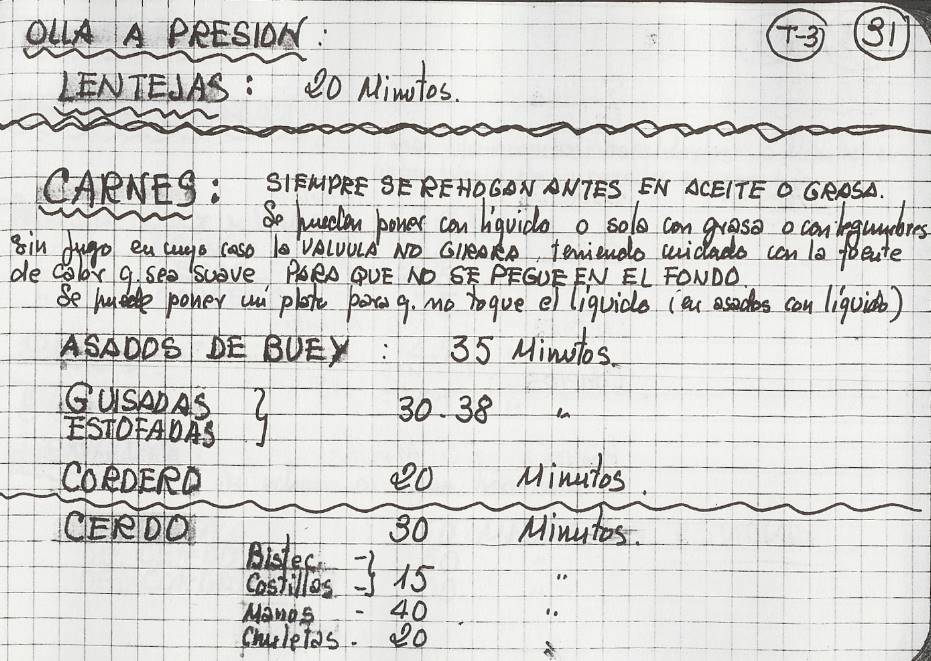 OLLA A PRESION: T-3 31
LENTEJAS: 20 Minutos.
CARNES: SIEMPRE SE REHOGAN ANTES EN ACEITE O GRASA.
Se pueden poner con líquido o sola con grasa o con legumbres
sin jugo en cuyo caso la VALVULA NO GIRARA, teniendo cuidado con la fuente
de calor q. sea suave PARA QUE NO SE PEGUE EN EL FONDO
Se puede poner un plato para q. no toque el líquido (en asados con líquido)
ASADOS DE BUEY : 35 Minutos.
GUISADAS } 30-38 "
ESTOFADAS
CORDERO 20 Minutos.
CERDO 30 Minutos.
Bistec -} 15 "
Costillas -
Manos - 40 "
Chuletas - 20 "